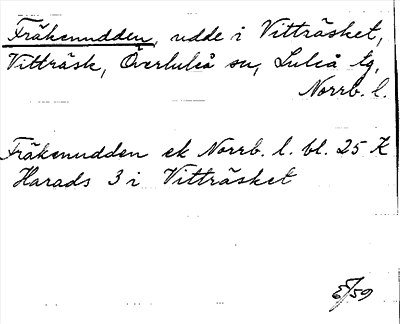 Fräkenudden, udde i Vitträsket,
Vitträsk, Överluleå sn, Luleå tg,
Norrb. l.
Fräkenudden ek Norrb. l. bl. 25 K
Harads 3 i Vitträsket
/59